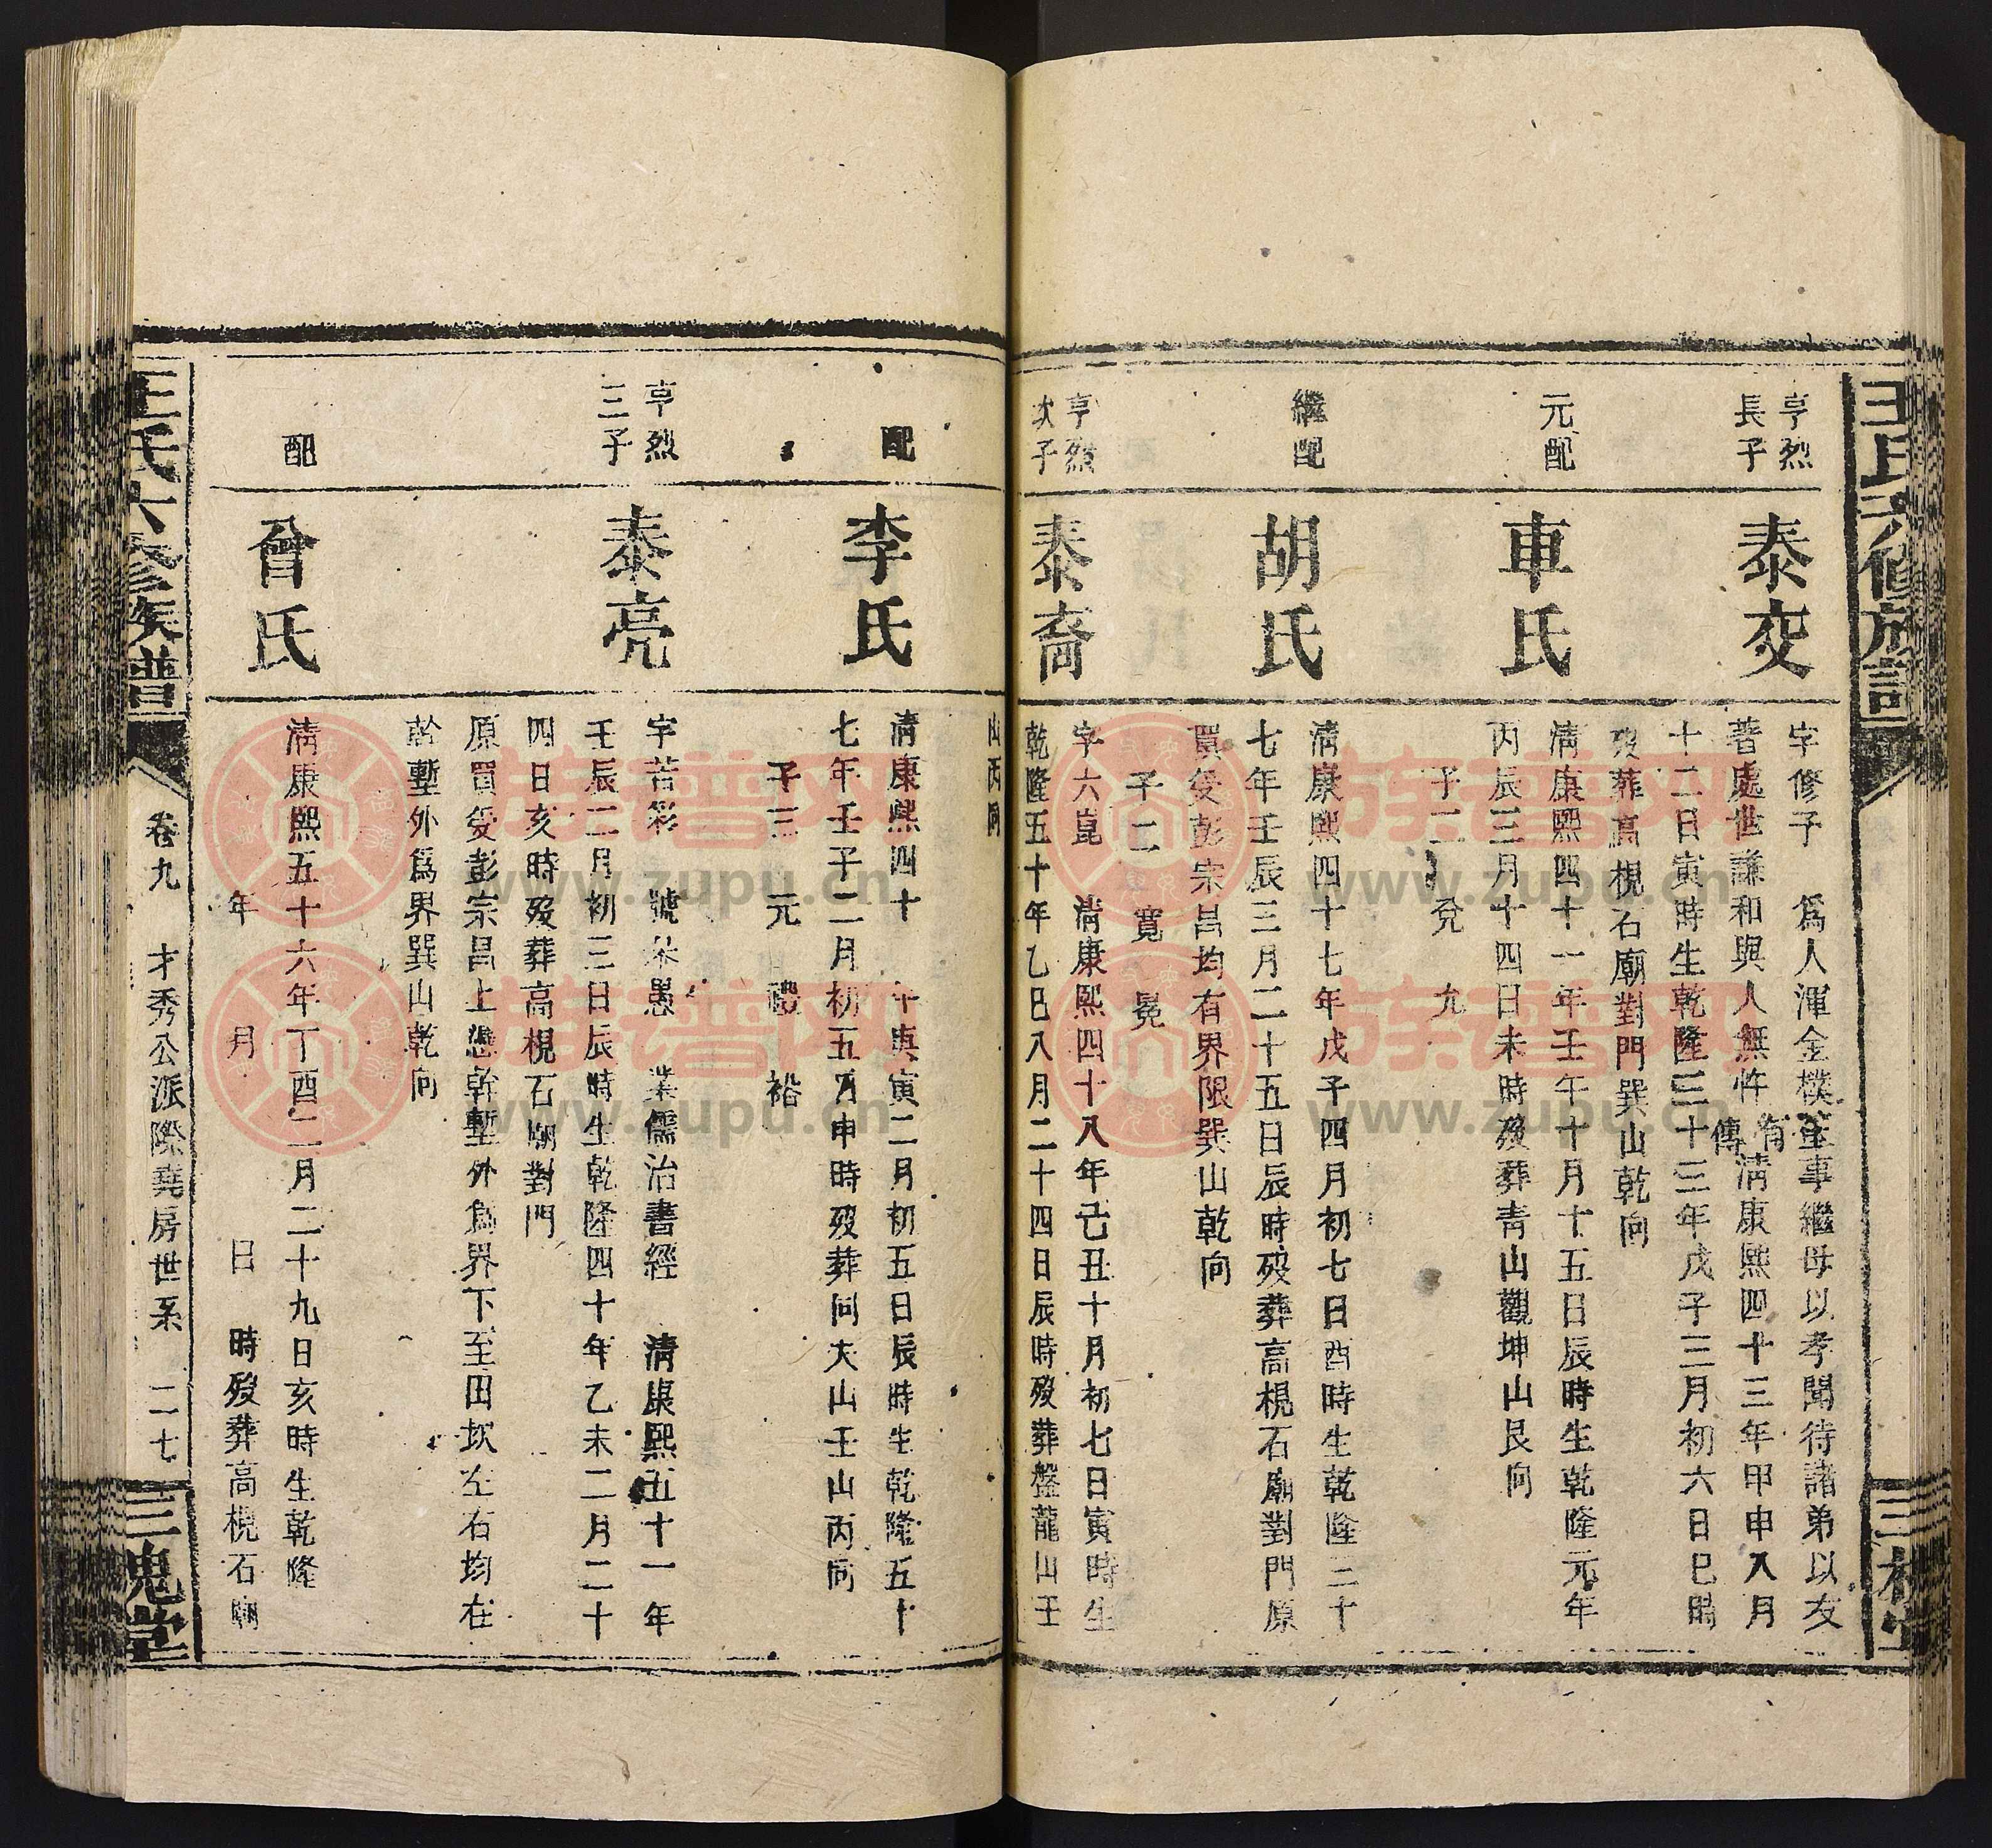 王氏六修族譜
亨烈
長子
泰交
字修子 爲人渾金樸玉事繼母以孝聞待諸弟以友
著處世謙和與人無忤有傳清康熙四十三年甲申八月
十二日寅時生乾隆三十三年戊子三月初六日巳時
歿葬高梘石廟對門巽山乾向
元配
車氏
清康熙四十一年壬午十月十五日辰時生乾隆元年
丙辰三月十四日未時歿葬青山觀坤山艮向
子二 兊 九
繼配
胡氏
清康熙四十七年戊子四月初七日酉時生乾隆三十
七年壬辰三月二十五日辰時歿葬高梘石廟對門原
買受彭宗昌均有界限巽山乾向
子二 寬 冕
亨烈
次子
泰裔
字六崑 清康熙四十八年己丑十月初七日寅時生
乾隆五十年乙巳八月二十四日辰時歿葬盤龍山壬
山丙向
配
李氏
清康熙四十 年庚寅二月初五日辰時生乾隆五十
七年壬子二月初五日申時歿葬向大山壬山丙向
子三 元 禮 裕
亨烈
三子
泰亮
字若彩 號林愚 業儒治書經 清康熙五十一年
壬辰二月初三日辰時生乾隆四十年乙未二月二十
四日亥時歿葬高梘石廟對門
原買受彭宗昌上憑幹塹外爲界下至田坎左右均在
幹塹外爲界巽山乾向
配
曾氏
清康熙五十六年丁酉二月二十九日亥時生乾隆
年 月 日 時歿葬高梘石廟
王氏六修族譜
卷九 才秀公派際堯房世系 二七
三槐堂